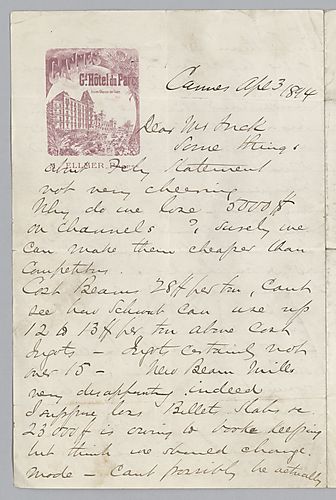 CANNES
Gd. Hôtel du Parc
ELLMER,
Cannes Apl 3 1894
Dear Mr Frick
Some things
about Feby Statement
not very cheering
Why do we lose 5000$
on Channels ? Surely we
can make them cheaper than
Competitors
Cost Beams 28$ per ton, Can't
see how Schwab can use up
12 to 13$ per ton above cost
Ingots — Ingots certainly not
over 15 — New Beam Mills
very disappointing indeed
I suppose loss Billet, Slabs
23000$ is owing to book keeping
but think we should change
mode — Can't possibly be actually